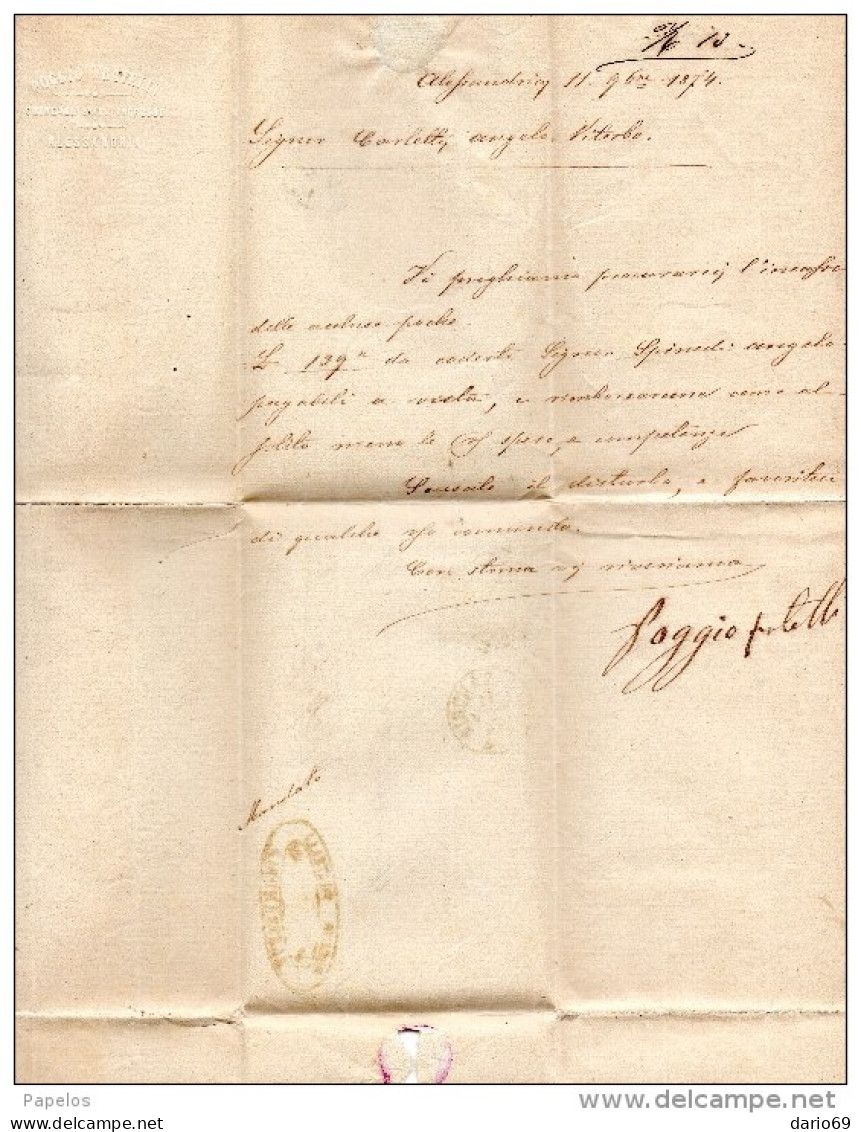 13
Alessandria 11. 9bre 1874.
Signor Carletti Angelo Viterbo.
Vi preghiamo procurarci l'incasso
delle accluse poche
L 139 da codesto Signor Spinedi Angelo
pagabili a vista, e rimborsarcene come al
solito meno le spese, e competenze
Scusate il disturbo, e favoriteci
di qualche comando.
Con stima riveriamo
Poggio fratelli
Mandato
ALESSANDRIA
Papelos
delcampe.net
dario69